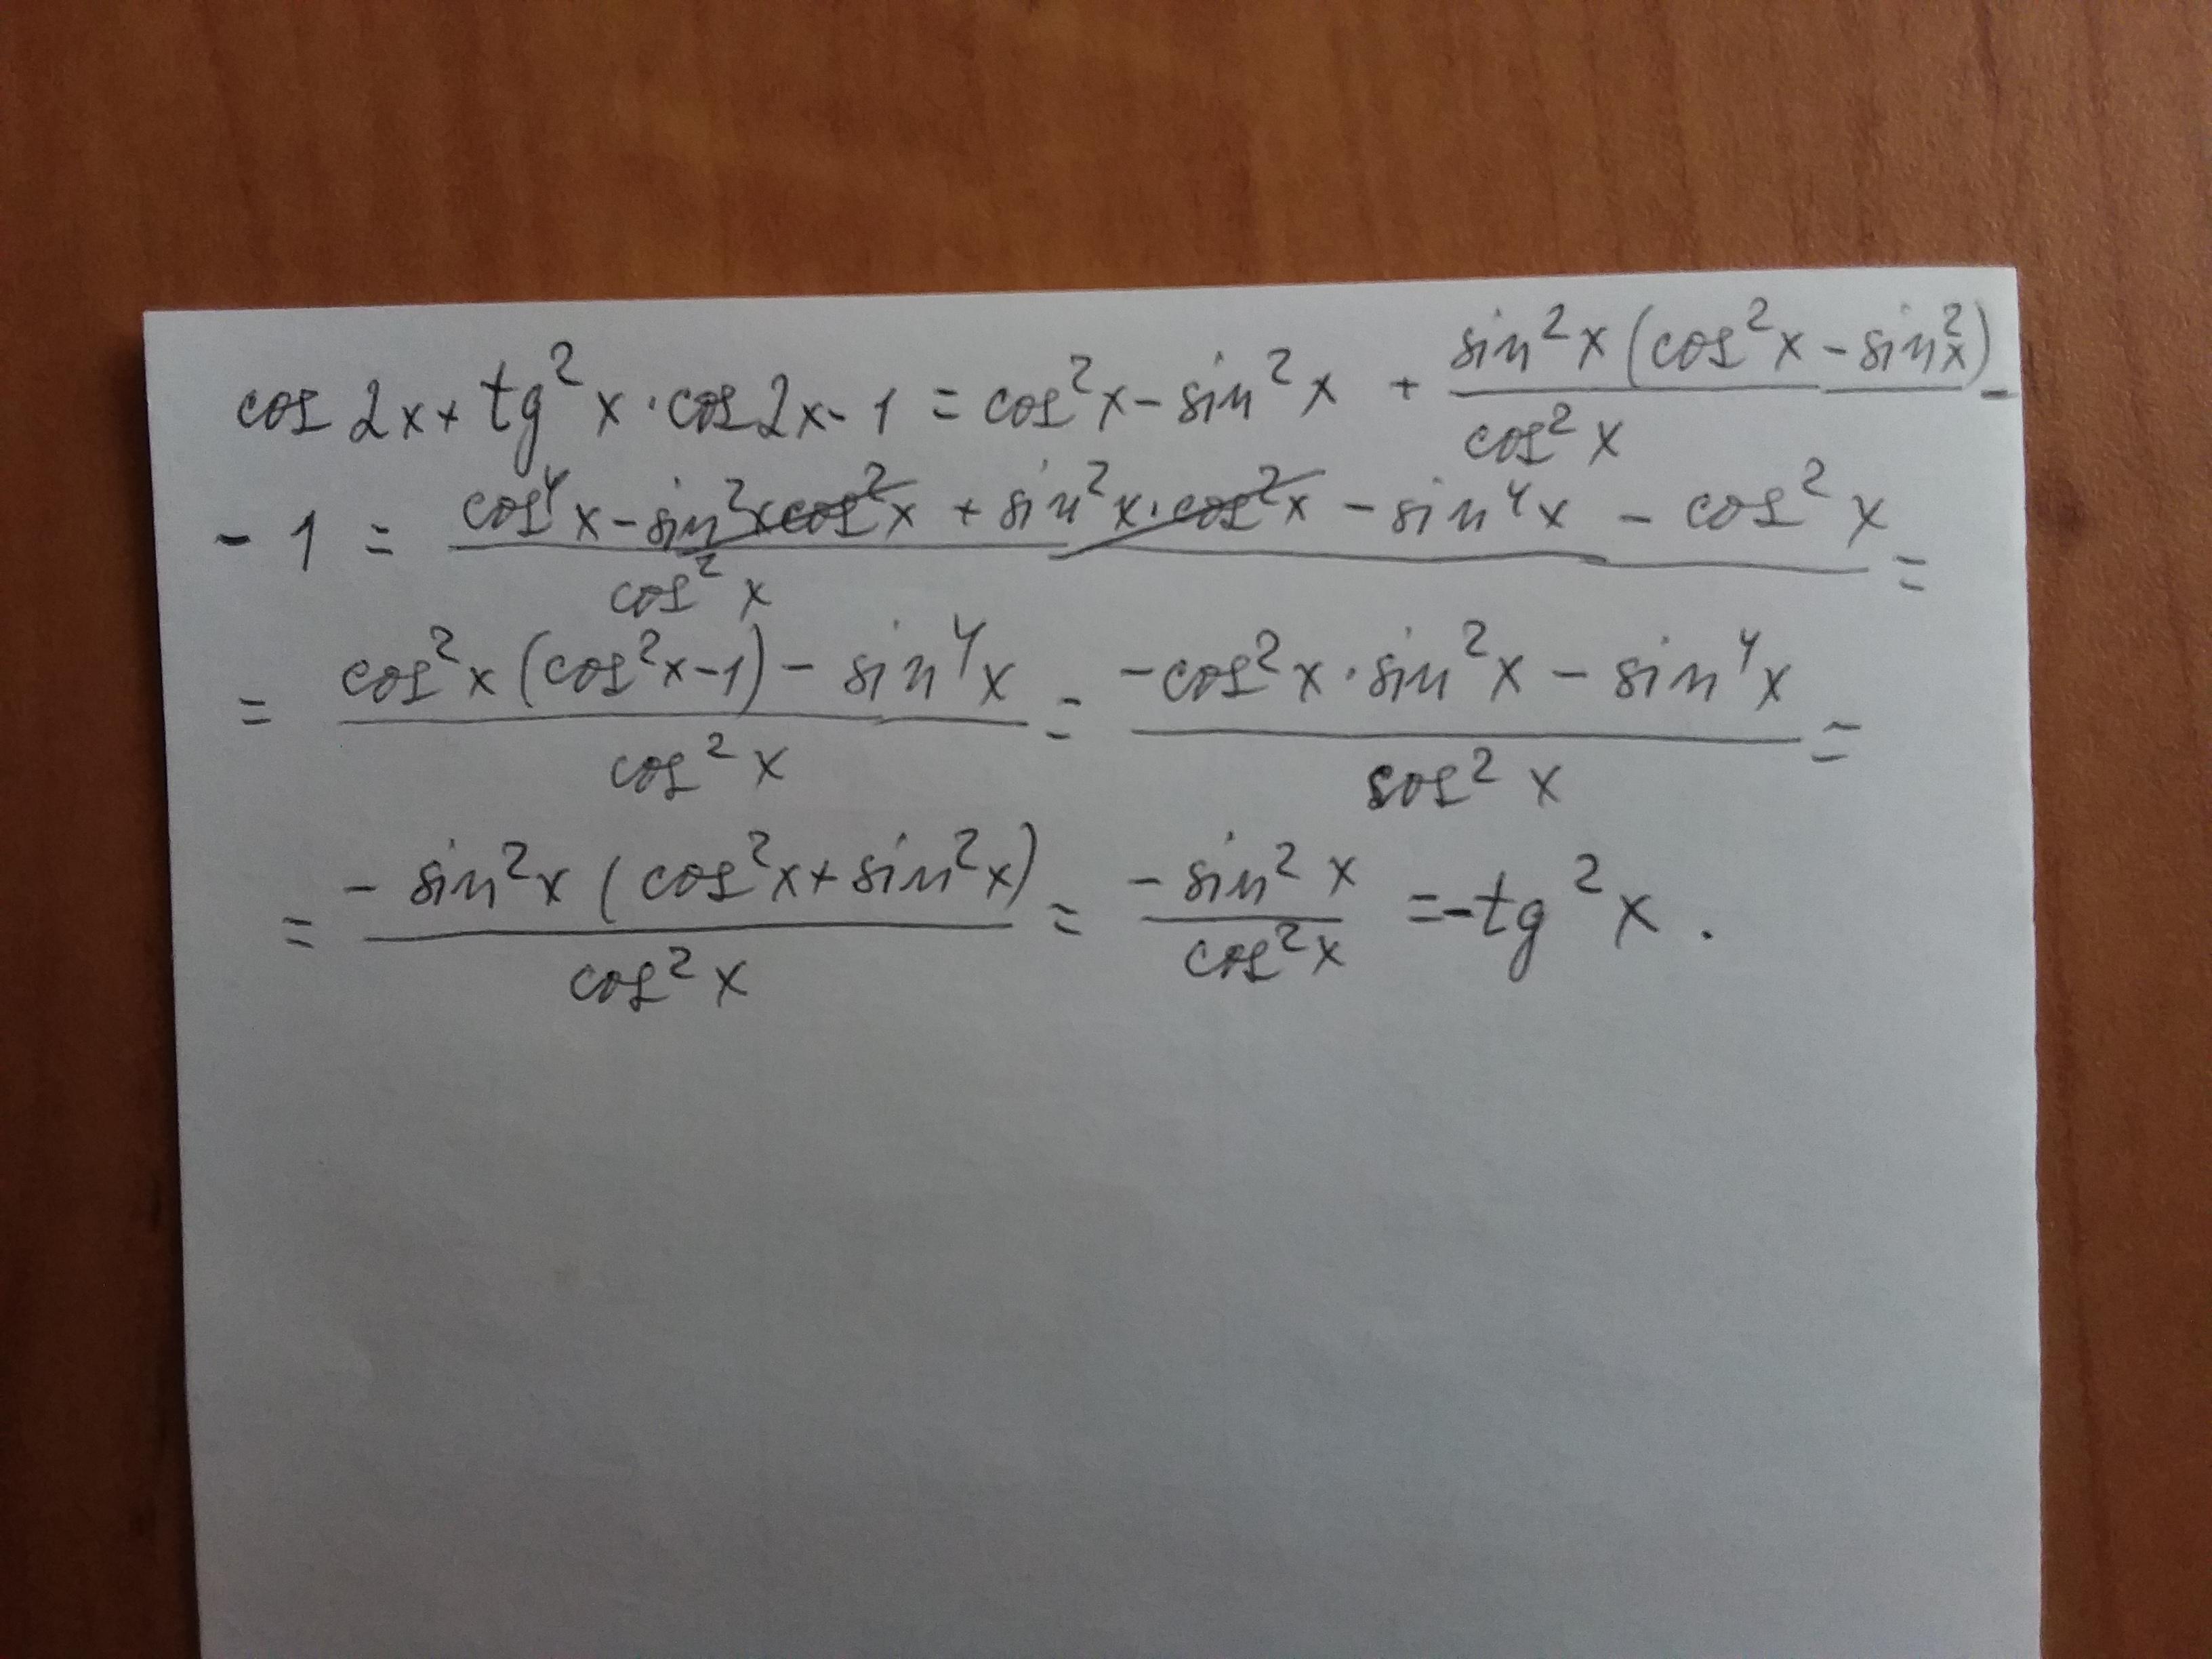 cos 2x + tg²x · cos 2x - 1 = cos²x - sin²x + \frac{sin²x (cos²x - sin²x)}{cos²x} -
- 1 = \frac{cos⁴x - sin²x cos²x + sin²x · cos²x - sin⁴x - cos²x}{cos²x} =
= \frac{cos²x (cos²x - 1) - sin⁴x}{cos²x} = \frac{-cos²x · sin²x - sin⁴x}{cos²x} =
= \frac{- sin²x (cos²x + sin²x)}{cos²x} = \frac{- sin²x}{cos²x} = - tg²x .